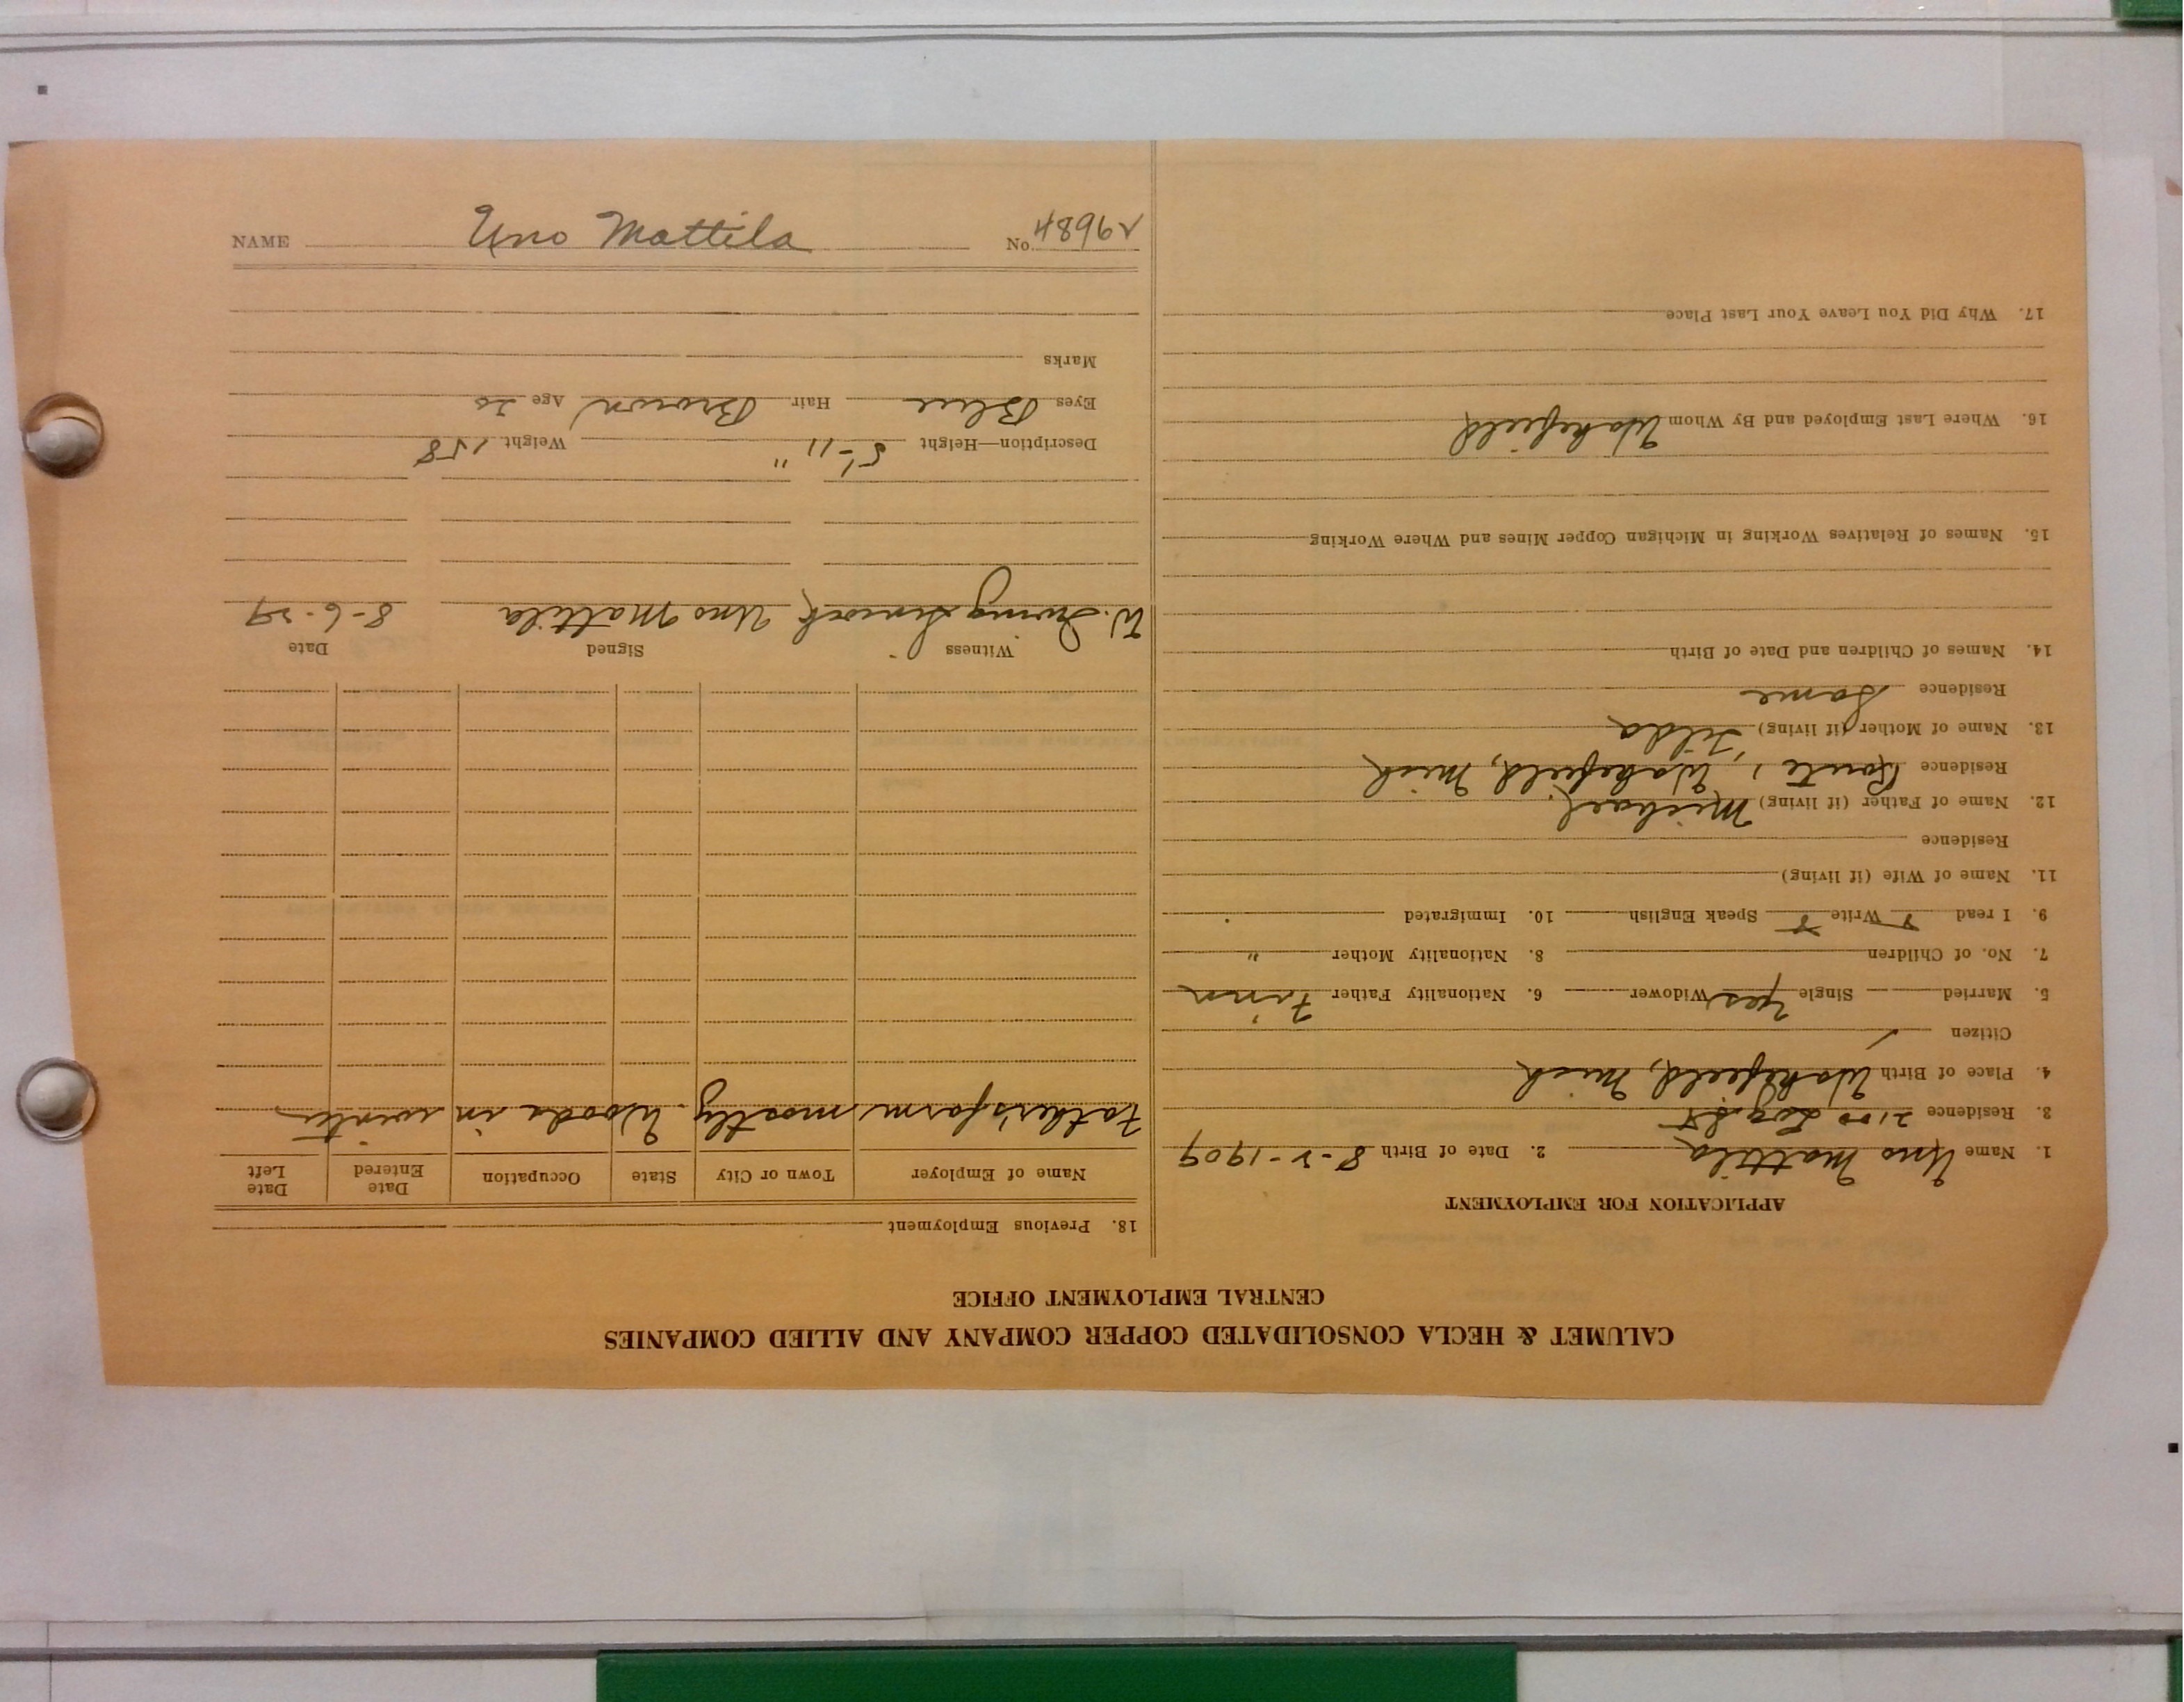 CALUMET & HECLA CONSOLIDATED COPPER COMPANY AND ALLIED COMPANIES
CENTRAL EMPLOYMENT OFFICE
APPLICATION FOR EMPLOYMENT
1. Name Uno Mattila 2. Date of Birth 8-2-1909
3. Residence 2100 Log St
4. Place of Birth Wakefield, Mich
Citizen ✓
5. Married Single Yes Widower 6. Nationality Father Finn
7. No. of Children 8. Nationality Mother "
9. I read Write Speak English 10. Immigrated
11. Name of Wife (if living)
Residence
12. Name of Father (if living) Michael
Residence Route 1, Wakefield, Mich
13. Name of Mother (if living) Tilda
Residence Same
14. Names of Children and Date of Birth
15. Names of Relatives Working in Michigan Copper Mines and Where Working
16. Where Last Employed and By Whom Wakefield
17. Why Did You Leave Your Last Place
18. Previous Employment
Name of Employer Town or City State Occupation Date Entered Date Left
Father's farm mostly. Woods in winter
Witness Signed Date
W. Irving Uno Mattila 8-6-29
Description—Height 5'-11" Weight 158
Eyes Blue Hair Brown Age 20
Marks
NAME Uno Mattila No. 48962